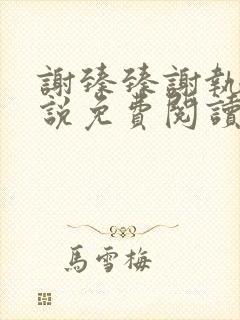 謝臻臻謝執
說免費閱讀
馬雪梅